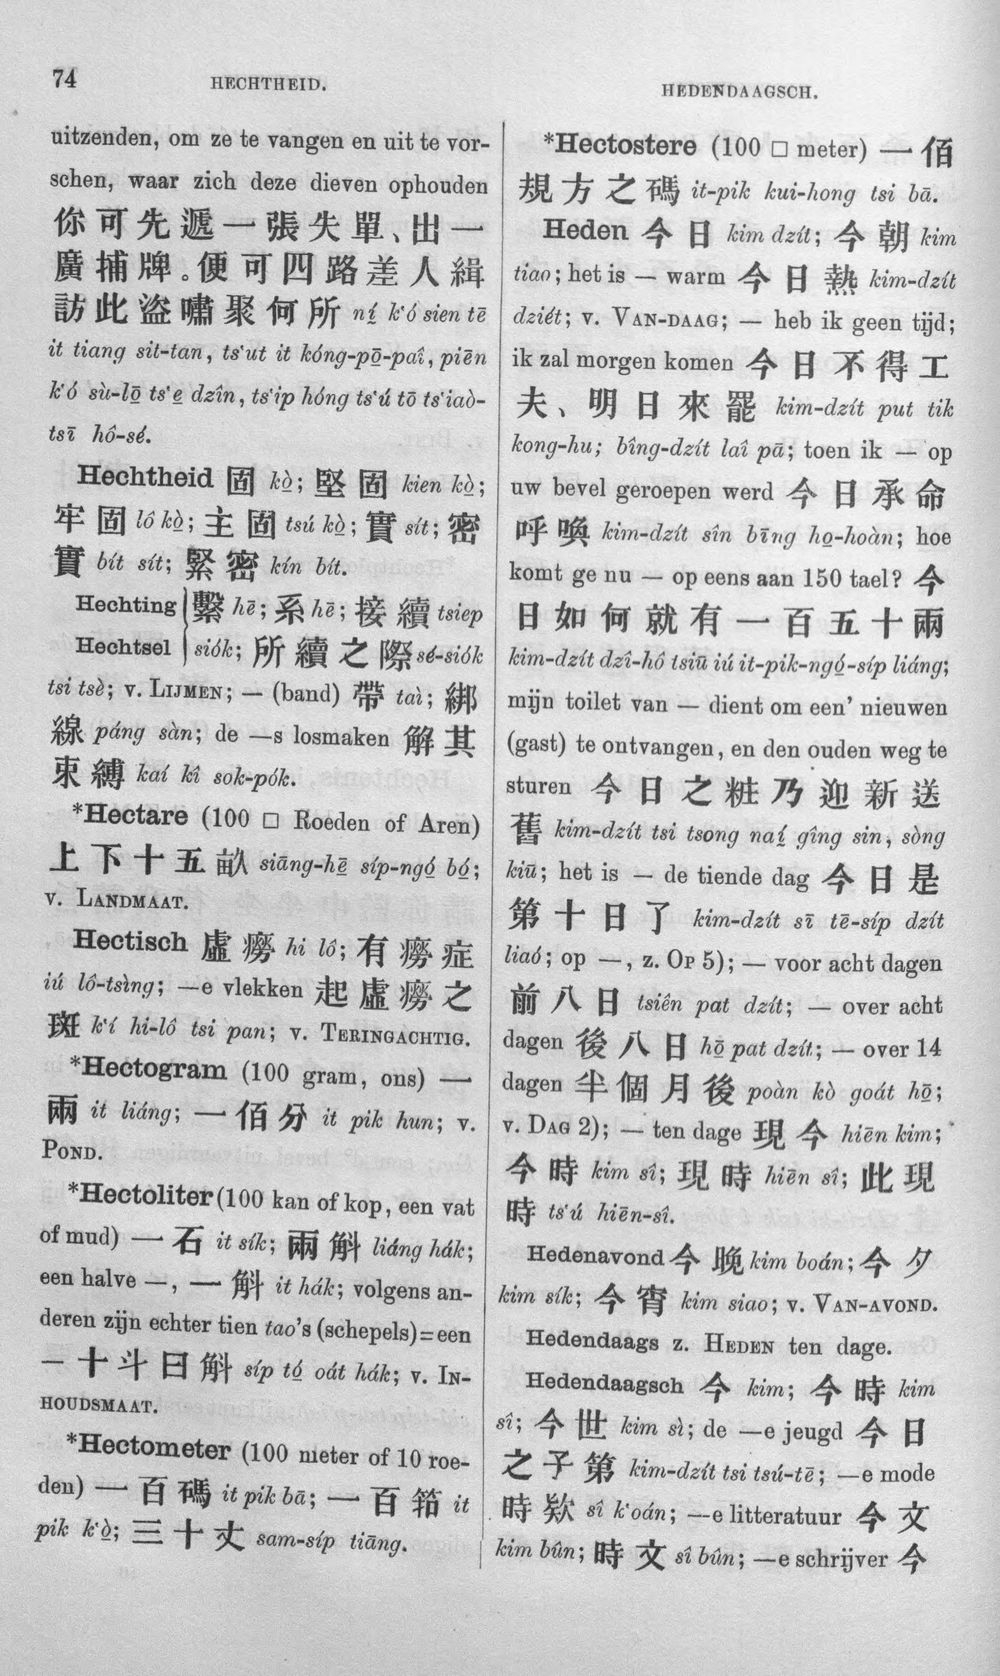 74
HECHTHEID.
HEDENDAAGSCH.
uitzenden, om ze te vangen en uit te vor-
schen, waar zich deze dieven ophouden
你可先遞一張失單、出一
廣捕牌。便可四路差人緝
訪此盜嘯聚何所 ní̤ k‘ó sien tē
it tiang sit-tan, ts‘ut it kóng-pō̤-paî, piēn
k‘ó sù-lō̤ ts‘e̤ dzîn, ts‘ip hóng ts‘ú tō ts‘iaò-
tsī hô-sé.
Hechtheid 固 kò̤; 堅固 kien kò̤;
牢固 lô kò̤; 主固 tsú kò̤; 實 sít; 密
實 bít sít; 緊密 kín bít.
Hechting 繫 hē; 系 hē; 接續 tsiep
Hechtsel siók; 所續之際 sé-siók
tsi tsè; v. LIJMEN; — (band) 帶 taì; 綁
線 páng sàn; de —s losmaken 解其
束縛 kaí kî sok-pók.
*Hectare (100 □ Roeden of Aren)
上下十五畝 siāng-hē̤ síp-ngó̤ bó̤;
v. LANDMAAT.
Hectisch 虛癆 hi lô; 有癆症
iú lô-tsìng; —e vlekken 起虛癆之
斑 k‘í hi-lô tsi pan; v. TERINGACHTIG.
*Hectogram (100 gram, ons) 一
兩 it liáng; 一佰分 it pik hun; v.
POND.
*Hectoliter (100 kan of kop, een vat
of mud) 一石 it sík; 兩斛 liáng hák;
een halve —, 一斛 it hák; volgens an-
deren zijn echter tien tao's (schepels)=een
— 十斗曰斛 síp tó̤ oát hák; v. IN-
HOUDSMAAT.
*Hectometer (100 meter of 10 roe-
den) 一百碼 it pik bā; 一百箔 it
pik k‘ò̤; 三十丈 sam-síp tiāng.
*Hectostere (100 □ meter) 一佰
規方之碼 it-pik kui-hong tsi bā.
Heden 今日 kim dzít; 今朝 kim
tiao; het is — warm 今日熱 kim-dzít
dziét; v. VAN-DAAG; — heb ik geen tijd;
ik zal morgen komen 今日不得工
夫、明日來罷 kim-dzít put tik
kong-hu; bîng-dzít laî pā; toen ik — op
uw bevel geroepen werd 今日承命
呼喚 kim-dzít sîn bīng ho̤-hoàn; hoe
komt ge nu — op eens aan 150 tael? 今
日如何就有一百五十兩
kim-dzít dzî-hô tsiū iú it-pik-ngó̤-síp liáng;
mijn toilet van — dient om een' nieuwen
(gast) te ontvangen, en den ouden weg te
sturen 今日之粧乃迎新送
舊 kim-dzít tsi tsong naí̤ gîng sin, sòng
kiū; het is — de tiende dag 今日是
第十日了 kim-dzít sī tē-síp dzít
liaó; op —, z. OP 5); — voor acht dagen
前八日 tsiên pat dzít; — over acht
dagen 後八日 hō̤ pat dzít; — over 14
dagen 半個月後 poàn kò goát hō̤;
v. DAG 2); — ten dage 現今 hiēn kim;
今時 kim sî; 現時 hiēn sî; 此現
時 ts‘ú hiēn-sî.
Hedenavond 今晚 kim boán; 今夕
kim sík; 今宵 kim siao; v. VAN-AVOND.
Hedendaags z. HEDEN ten dage.
Hedendaagsch 今 kim; 今時 kim
sî; 今世 kim sì; de —e jeugd 今日
之子第 kim-dzít tsi tsú-tē; —e mode
時欵 sî k‘oán; —e litteratuur 今文
kim bûn; 時文 sî bûn; —e schrijver 今